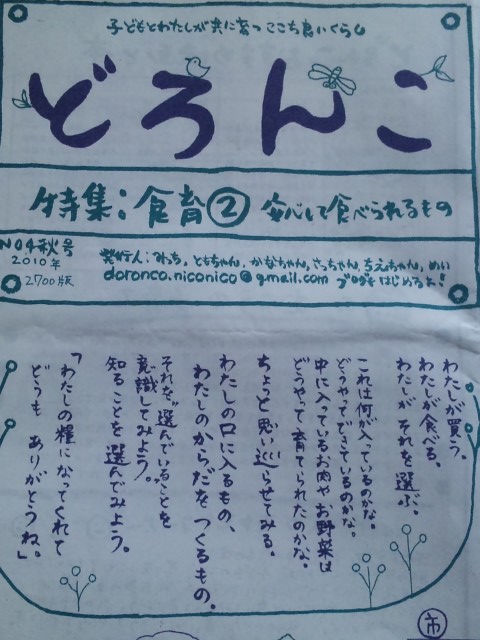 子どもとわたしが共に育つ ここち良いくらし
どろんこ
特集:食育② 安心して食べられるもの
NO4秋号
2010年
2700版
発行人:みっち,ともちゃん,かなちゃん,さっちゃん,ちえちゃん,めい
doronco.niconico@gmail.com ブログもはじめるよ!
わたしが買う。
わたしが食べる。
わたしが それを 選ぶ。
これは何が入っているのかな。
どうやってできているのかな。
中に入っているお肉や お野菜は
どうやって 育てられたのかな。
ちょっと思い巡らせてみる。
わたしの口に入るもの、
わたしのからだを つくるもの。
それを"選んでいる"ことを
意識してみよう。
知ることを 選んでみよう。
「わたしの糧になってくれて
どうも ありがとうね。」
市